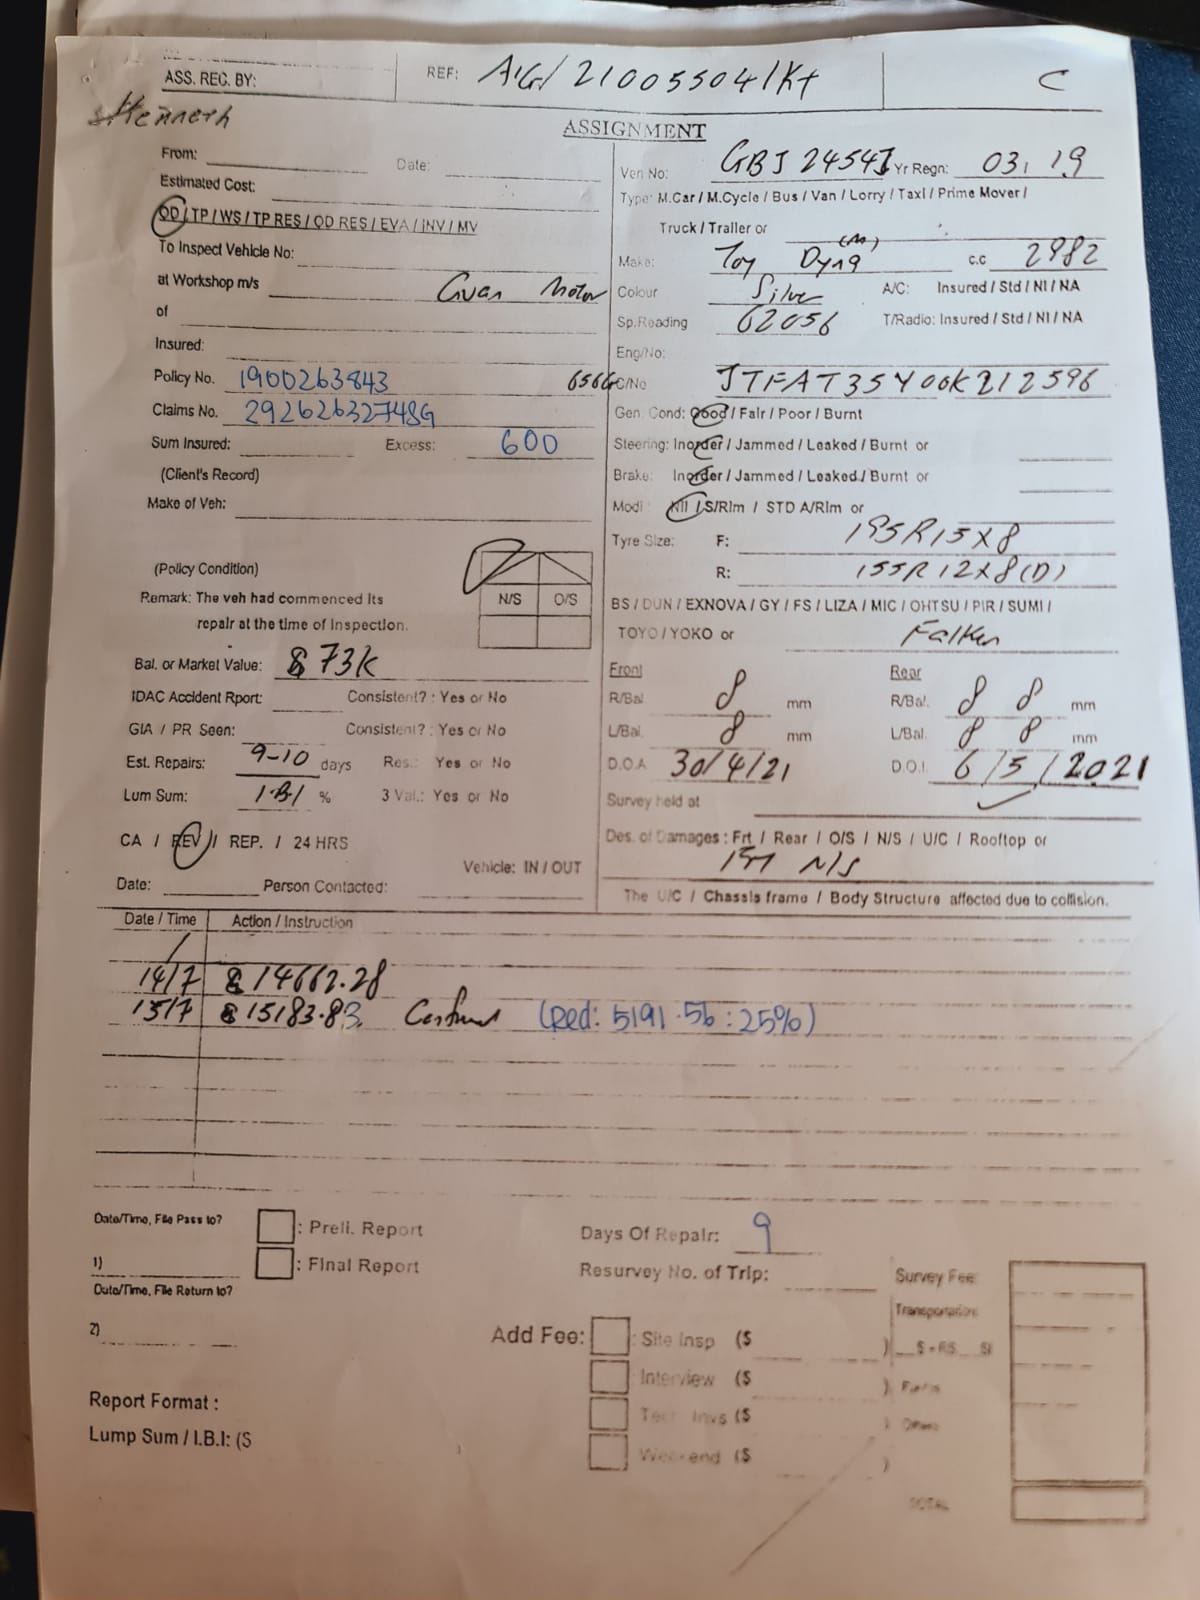 ASS. REC. BY:
REF: AIG/21005504/Kt
C
Kenneth
ASSIGNMENT
From: Date:
Estimated Cost:
OD / TP / WS / TP RES / OD RES / EVA / INV / MV
To Inspect Vehicle No:
at Workshop m/s Guan Motor
of
Insured:
Policy No. 1900263843
Claims No. 2926263274SG
Sum Insured: Excess: 600
(Client's Record)
Make of Veh:
(Policy Condition)
N/S O/S
Remark: The veh had commenced its
repair at the time of Inspection.
Bal. or Market Value: $73K
IDAC Accident Rport: Consistent? : Yes or No
GIA / PR Seen: Consistent? : Yes or No
Est. Repairs: 9-10 days Res.: Yes or No
Lum Sum: % 3 Val.: Yes or No
CA / REV / REP. / 24 HRS
Vehicle: IN / OUT
Date: Person Contacted:
Veh No: GBJ 2454J Yr Regn: 03, 19
Type: M.Car / M.Cycle / Bus / Van / Lorry / Taxi / Prime Mover /
Truck / Trailer or
Make: Toy Dyna (M) c.c 2982
Colour Silver A/C: Insured / Std / NI / NA
Sp.Reading 62056 T/Radio: Insured / Std / NI / NA
Eng/No:
6566 C/No JTFAT35Y00K212596
Gen. Cond: Good / Fair / Poor / Burnt
Steering: Inorder / Jammed / Leaked / Burnt or
Brake: Inorder / Jammed / Leaked / Burnt or
Modi: Nil / S/Rim / STD A/Rim or
Tyre Size: F: 195R15X8
R: 155R12X8(D)
BS / DUN / EXNOVA / GY / FS / LIZA / MIC / OHTSU / PIR / SUMI /
TOYO / YOKO or Falken
Front Rear
R/Bal 8 mm R/Bal. 8 8 mm
L/Bal. 8 mm L/Bal. 8 8 mm
D.O.A 30/4/21 D.O.I. 6/5/2021
Survey held at
Des. of Damages : Frt / Rear / O/S / N/S / U/C / Rooftop or
Frt N/S
The U/C / Chassis frame / Body Structure affected due to collision.
Date / Time Action / Instruction
14/7 $14662.28
15/7 $15183.83 (Red: 5191.56 : 25%)
Date/Time, File Pass to? : Preli. Report Days Of Repair: 9
1) : Final Report Resurvey No. of Trip:
Date/Time, File Return to?
2)
Survey Fee:
Transportation
Add Fee: : Site Insp ($ )
Interview ($ )
Tech Invs ($ )
Weekend ($ )
TOTAL
Report Format :
Lump Sum / I.B.I: ($